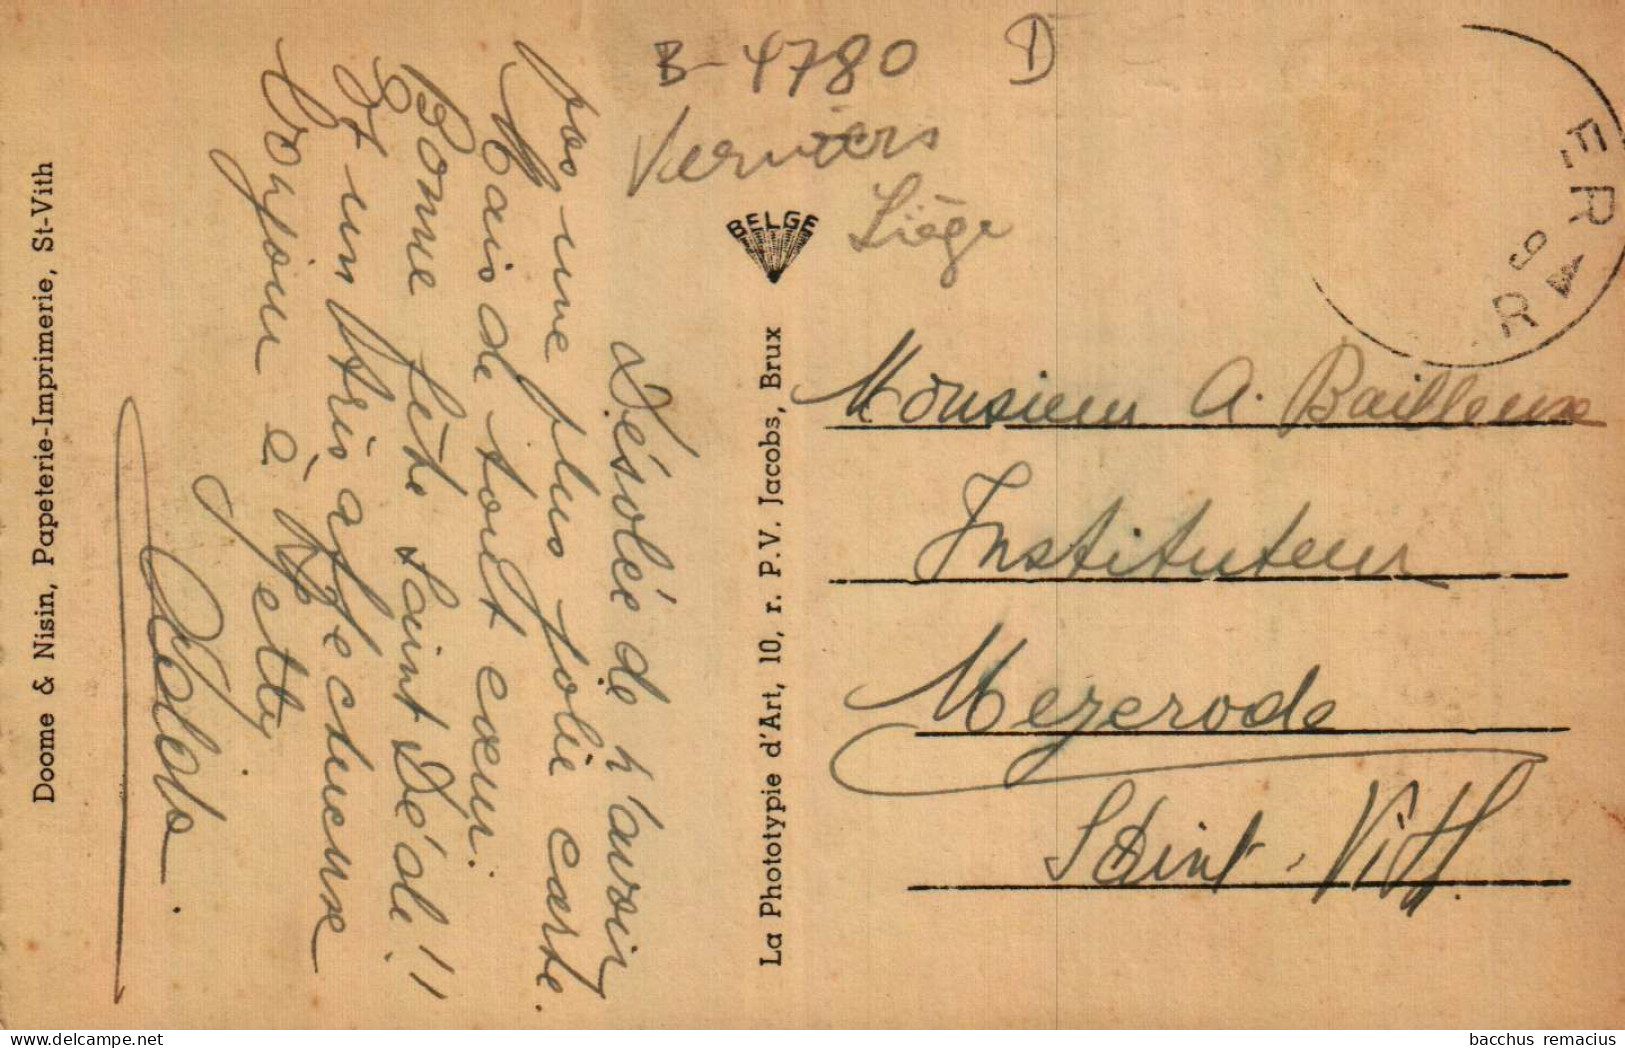 Doome & Nisin, Papeterie-Imprimerie, St-Vith
Désolée de n'avoir
pas une plus jolie carte.
Mais de tout cœur.
Bonne fête Saint Dédé!!
Et un bris affectueux
bonjour à Betty
La Phototypie d'Art, 10, r. P. V. Jacobs, Brux
BELGE
B-4780
D
Verviers
Liège
ER
9
R
Monsieur A. Bailleux
Instituteur
Mezerode
Saint-Vith.
bacchus remacius